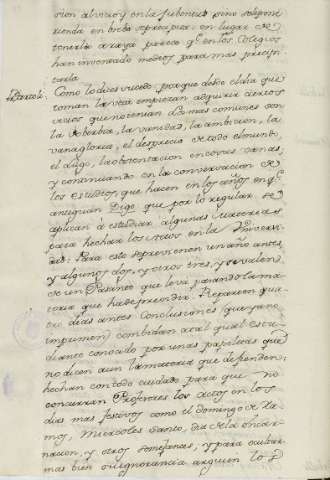 cion al vicio y en la jubentud pero se le pon
rienda en breve se precipita, en lugar de
tenerla a raya parece qe. en los Colegios
han inventado medios para mas precipi
tarla
Como lo dice sucede, porque desde el dia que
toman la veca empiezan adquirir ciertos
vicios que no tenian. Los mas comunes son
la soberbia, la vanidad, la ambicion, la
vanagloria, el desprecio de todo el mundo,
el lujo, la obstentacion en cosas vanas,
y continuando en la conversacion de
los estudios, que hacen en los años en qe.
antiguan Digo que por lo regular se
aplican á estudiar algunas materias
para hechar los actos en la Univercí
dad: Para esta se previenen un año antes
y algunos dos, y otros tres, y se valen
de un Pasante que les va pasando la ma
teria que ha de prendir. Reparten qua
tro dias antes Conclusiones (que ya no
imprimen) combidan a tal qual estu
diante conocido por unas papeletas que
no dicen aun la materia que defienden,
hechan con todo cuidado para que no
concurran Profesores los actos en los
dias mas festivos como el domingo de Ra
mos, Miercoles Santo, dia de la encar
nacion, y otros semejantes, y para ocultar
mas bien su ignorancia arguien los